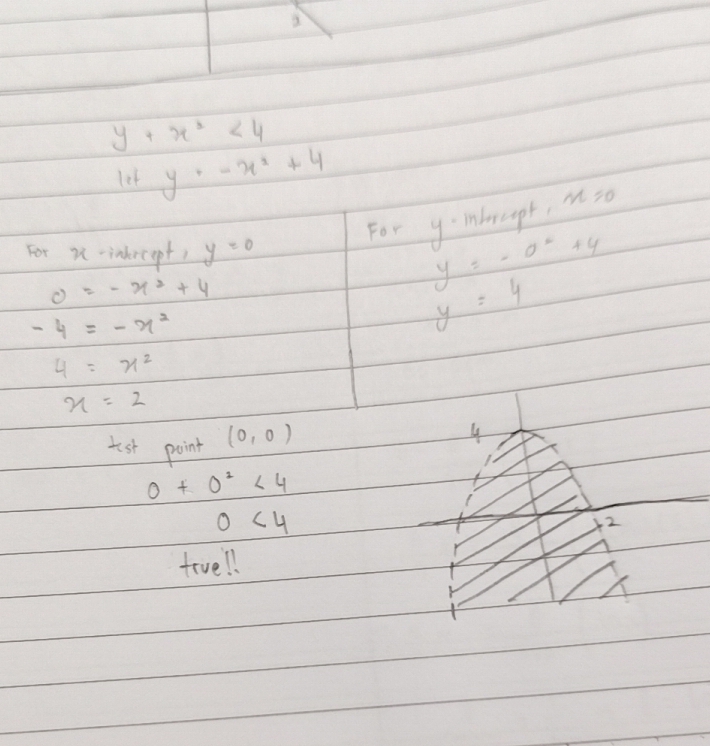 y + x² < 4
let y = -x² + 4
For x-intercept, y = 0
0 = -x² + 4
-4 = -x²
4 = x²
x = 2
For y-intercept, x = 0
y = -0² + 4
y = 4
test point (0,0)
0 + 0² < 4
0 < 4
true!!
4
2